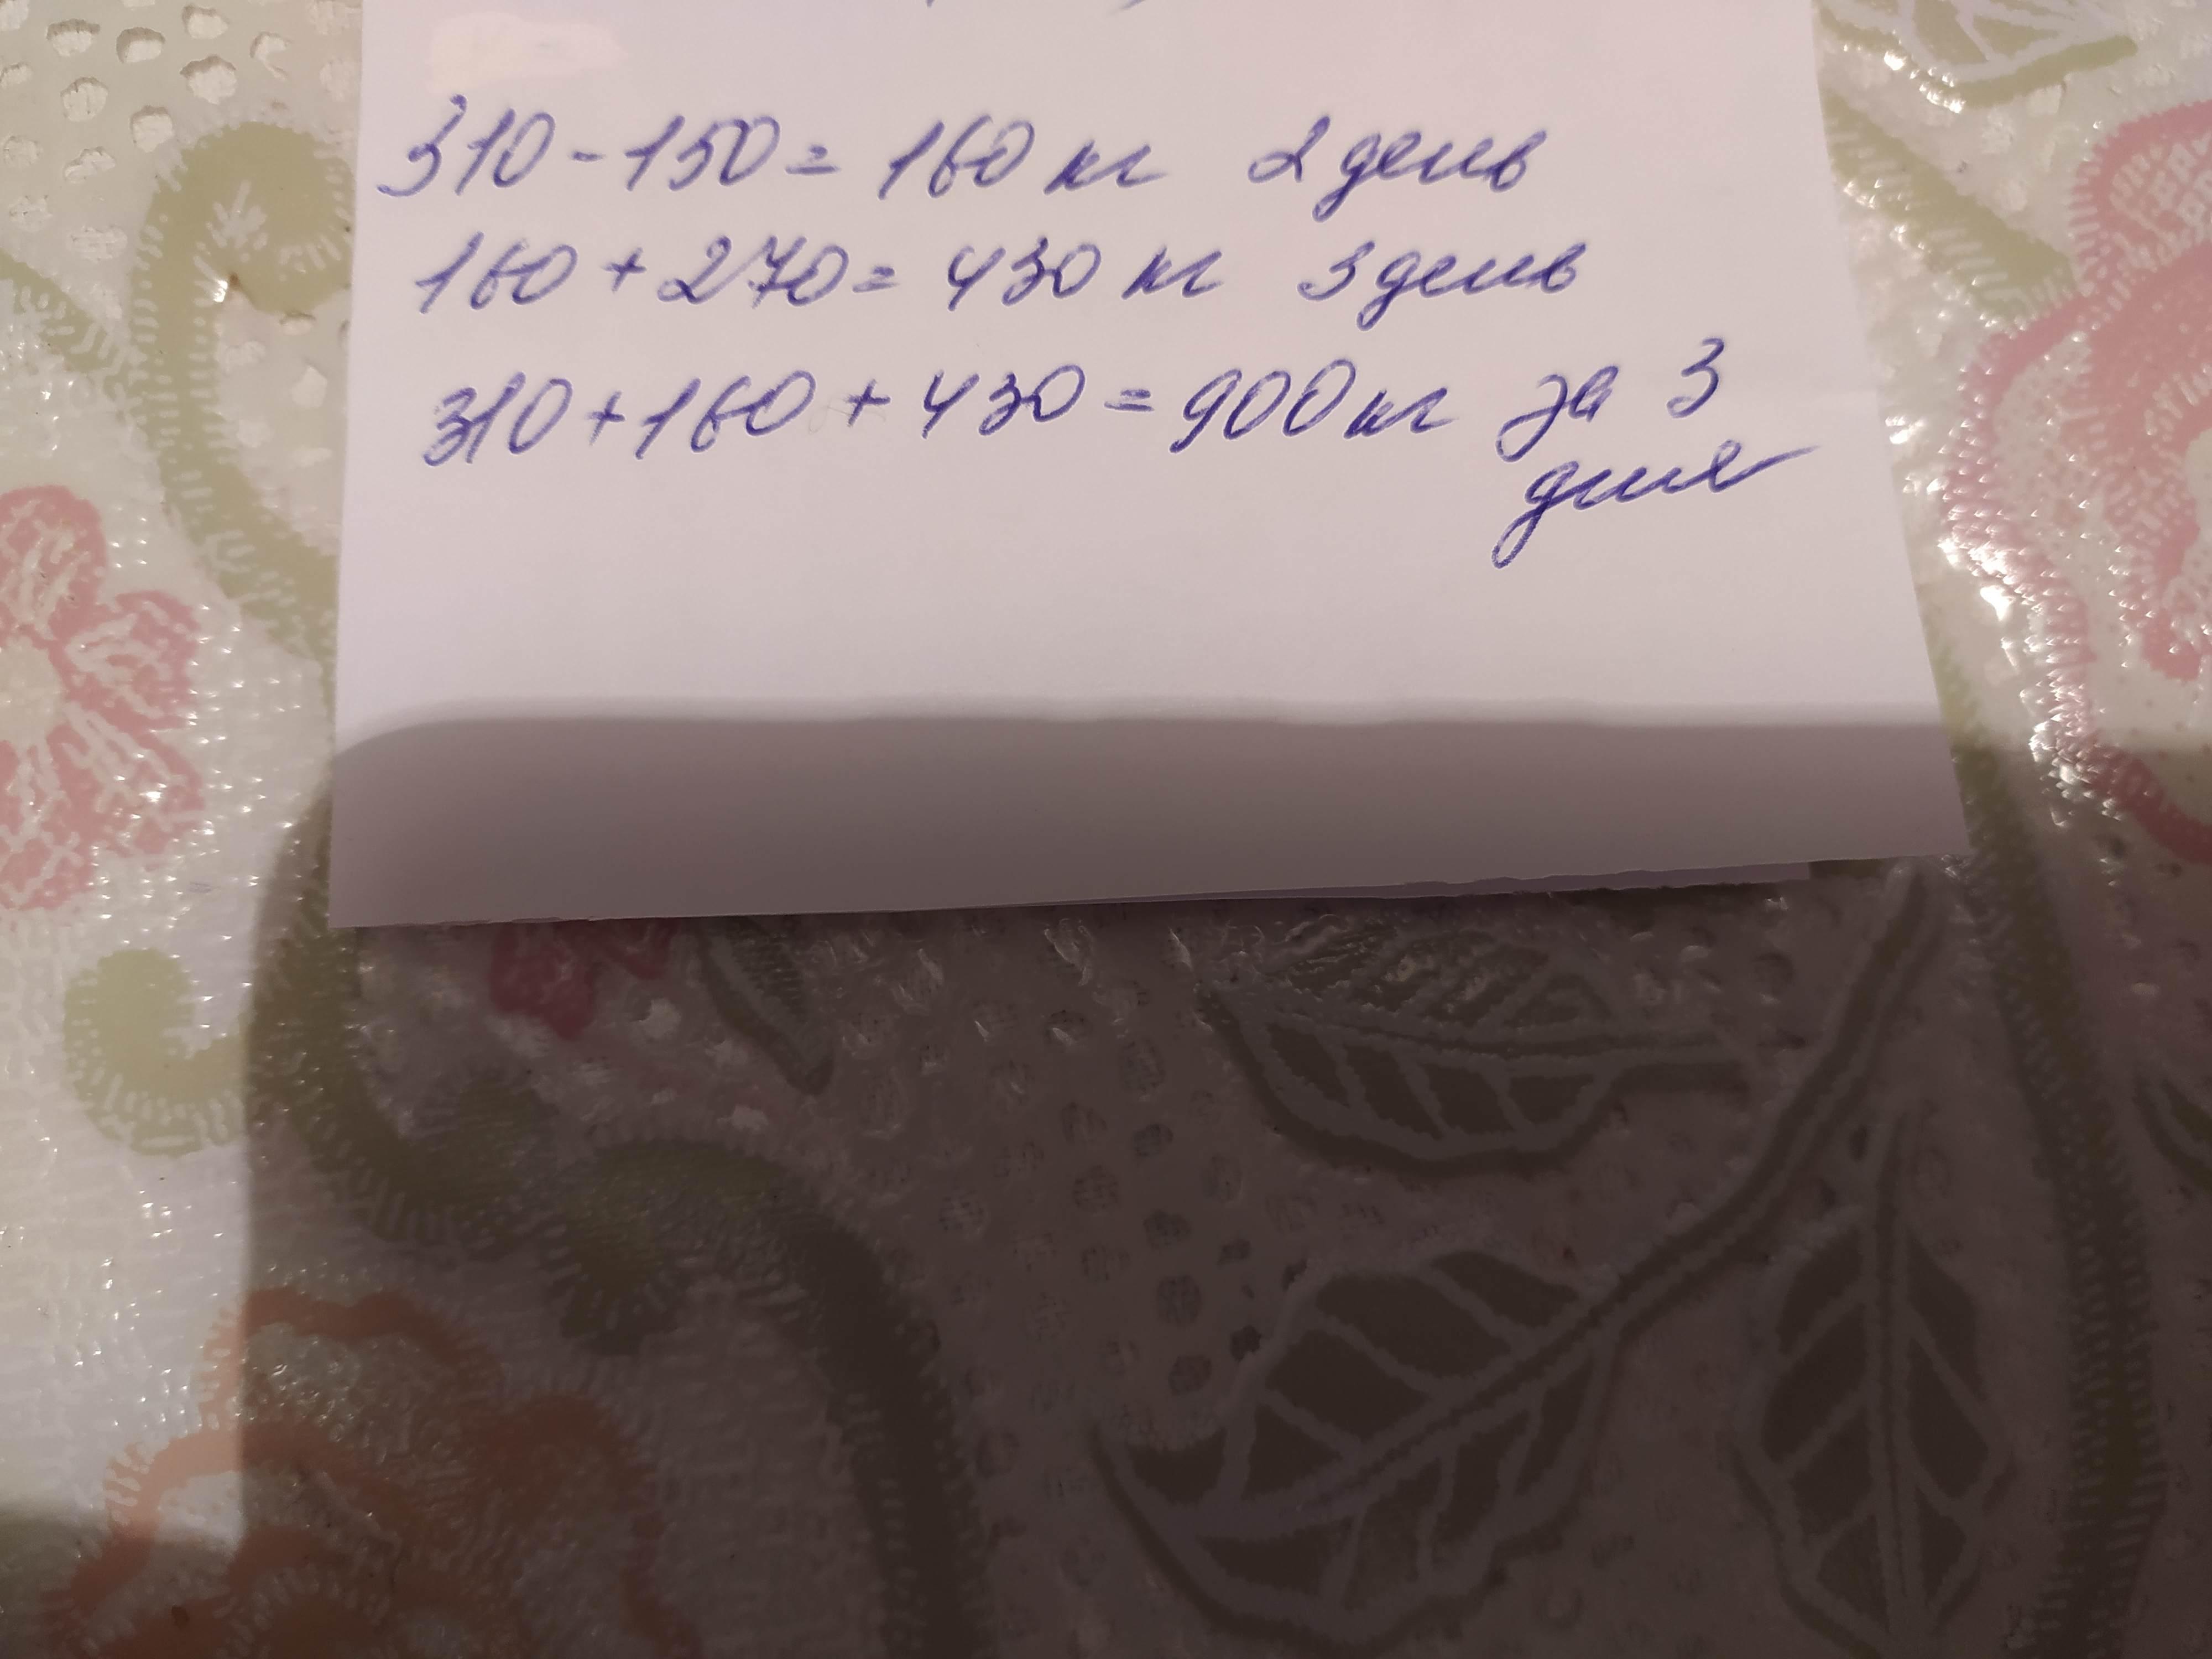 310 - 150 = 160 кг 2 день
160 + 270 = 430 кг 3 день
310 + 160 + 430 = 900 кг за 3
дня